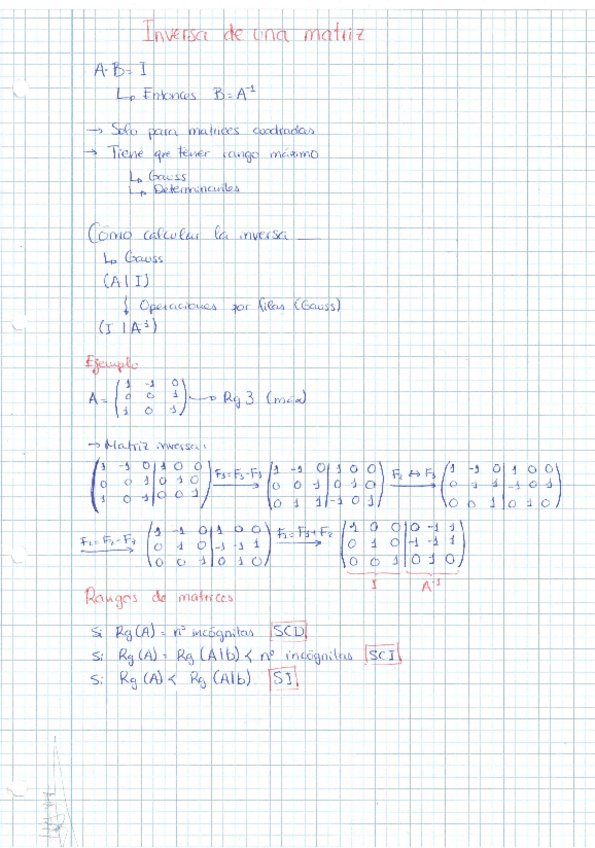 Inversa de una matriz
A·B = I
↳ Entonces B = A⁻¹
→ Solo para matrices cuadradas
→ Tiene que tener rango máximo
↳ Gauss
↳ Determinantes
Cómo calcular la inversa
↳ Gauss
(A | I)
↓ Operaciones por filas (Gauss)
(I | A⁻¹)
Ejemplo
A = (1 -1 0 / 0 0 1 / 1 0 1) → Rg 3 (máx)
→ Matriz inversa:
(1 -1 0 | 1 0 0 / 0 0 1 | 0 1 0 / 1 0 1 | 0 0 1) F₃=F₃-F₁ → (1 -1 0 | 1 0 0 / 0 0 1 | 0 1 0 / 0 1 1 | -1 0 1) F₂ ↔ F₃ → (1 -1 0 | 1 0 0 / 0 1 1 | -1 0 1 / 0 0 1 | 0 1 0)
F₂=F₂-F₃ → (1 -1 0 | 1 0 0 / 0 1 0 | -1 -1 1 / 0 0 1 | 0 1 0) F₁=F₁+F₂ → (1 0 0 | 0 -1 1 / 0 1 0 | -1 -1 1 / 0 0 1 | 0 1 0)
I A⁻¹
Rangos de matrices
Si Rg(A) = nº incógnitas SCD
Si Rg(A) = Rg(A|b) < nº incógnitas SCI
Si Rg(A) < Rg(A|b) SI